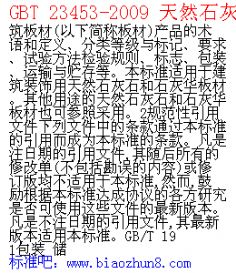 GBT 23453-2009 天然石灰
筑板材(以下简称板材)产品的术
语和定义、分类等级与标记、要求
、试验方法检验规则、标志、包装
、运输与贮存等。本标准适用于建
筑装饰用天然石灰石和石灰华板材
。其他用途的天然石灰石和石灰华
板材也可参照采用。2规范性引用
文件下列文件中的条款通过本标准
的引用而成为本标准的条款。凡是
注日期的引用文件,其随后所有的
修改单(不包括勘误的内容)或修
订版均不适用于本标准,然而,鼓
励根据本标准达成协议的各方研究
是否可使用这些文件的最新版本。
凡是不注日期的引用文件,其最新
版本适用本标准。GB/T 19
1包装 储
标准吧:www.biaozhun8.com